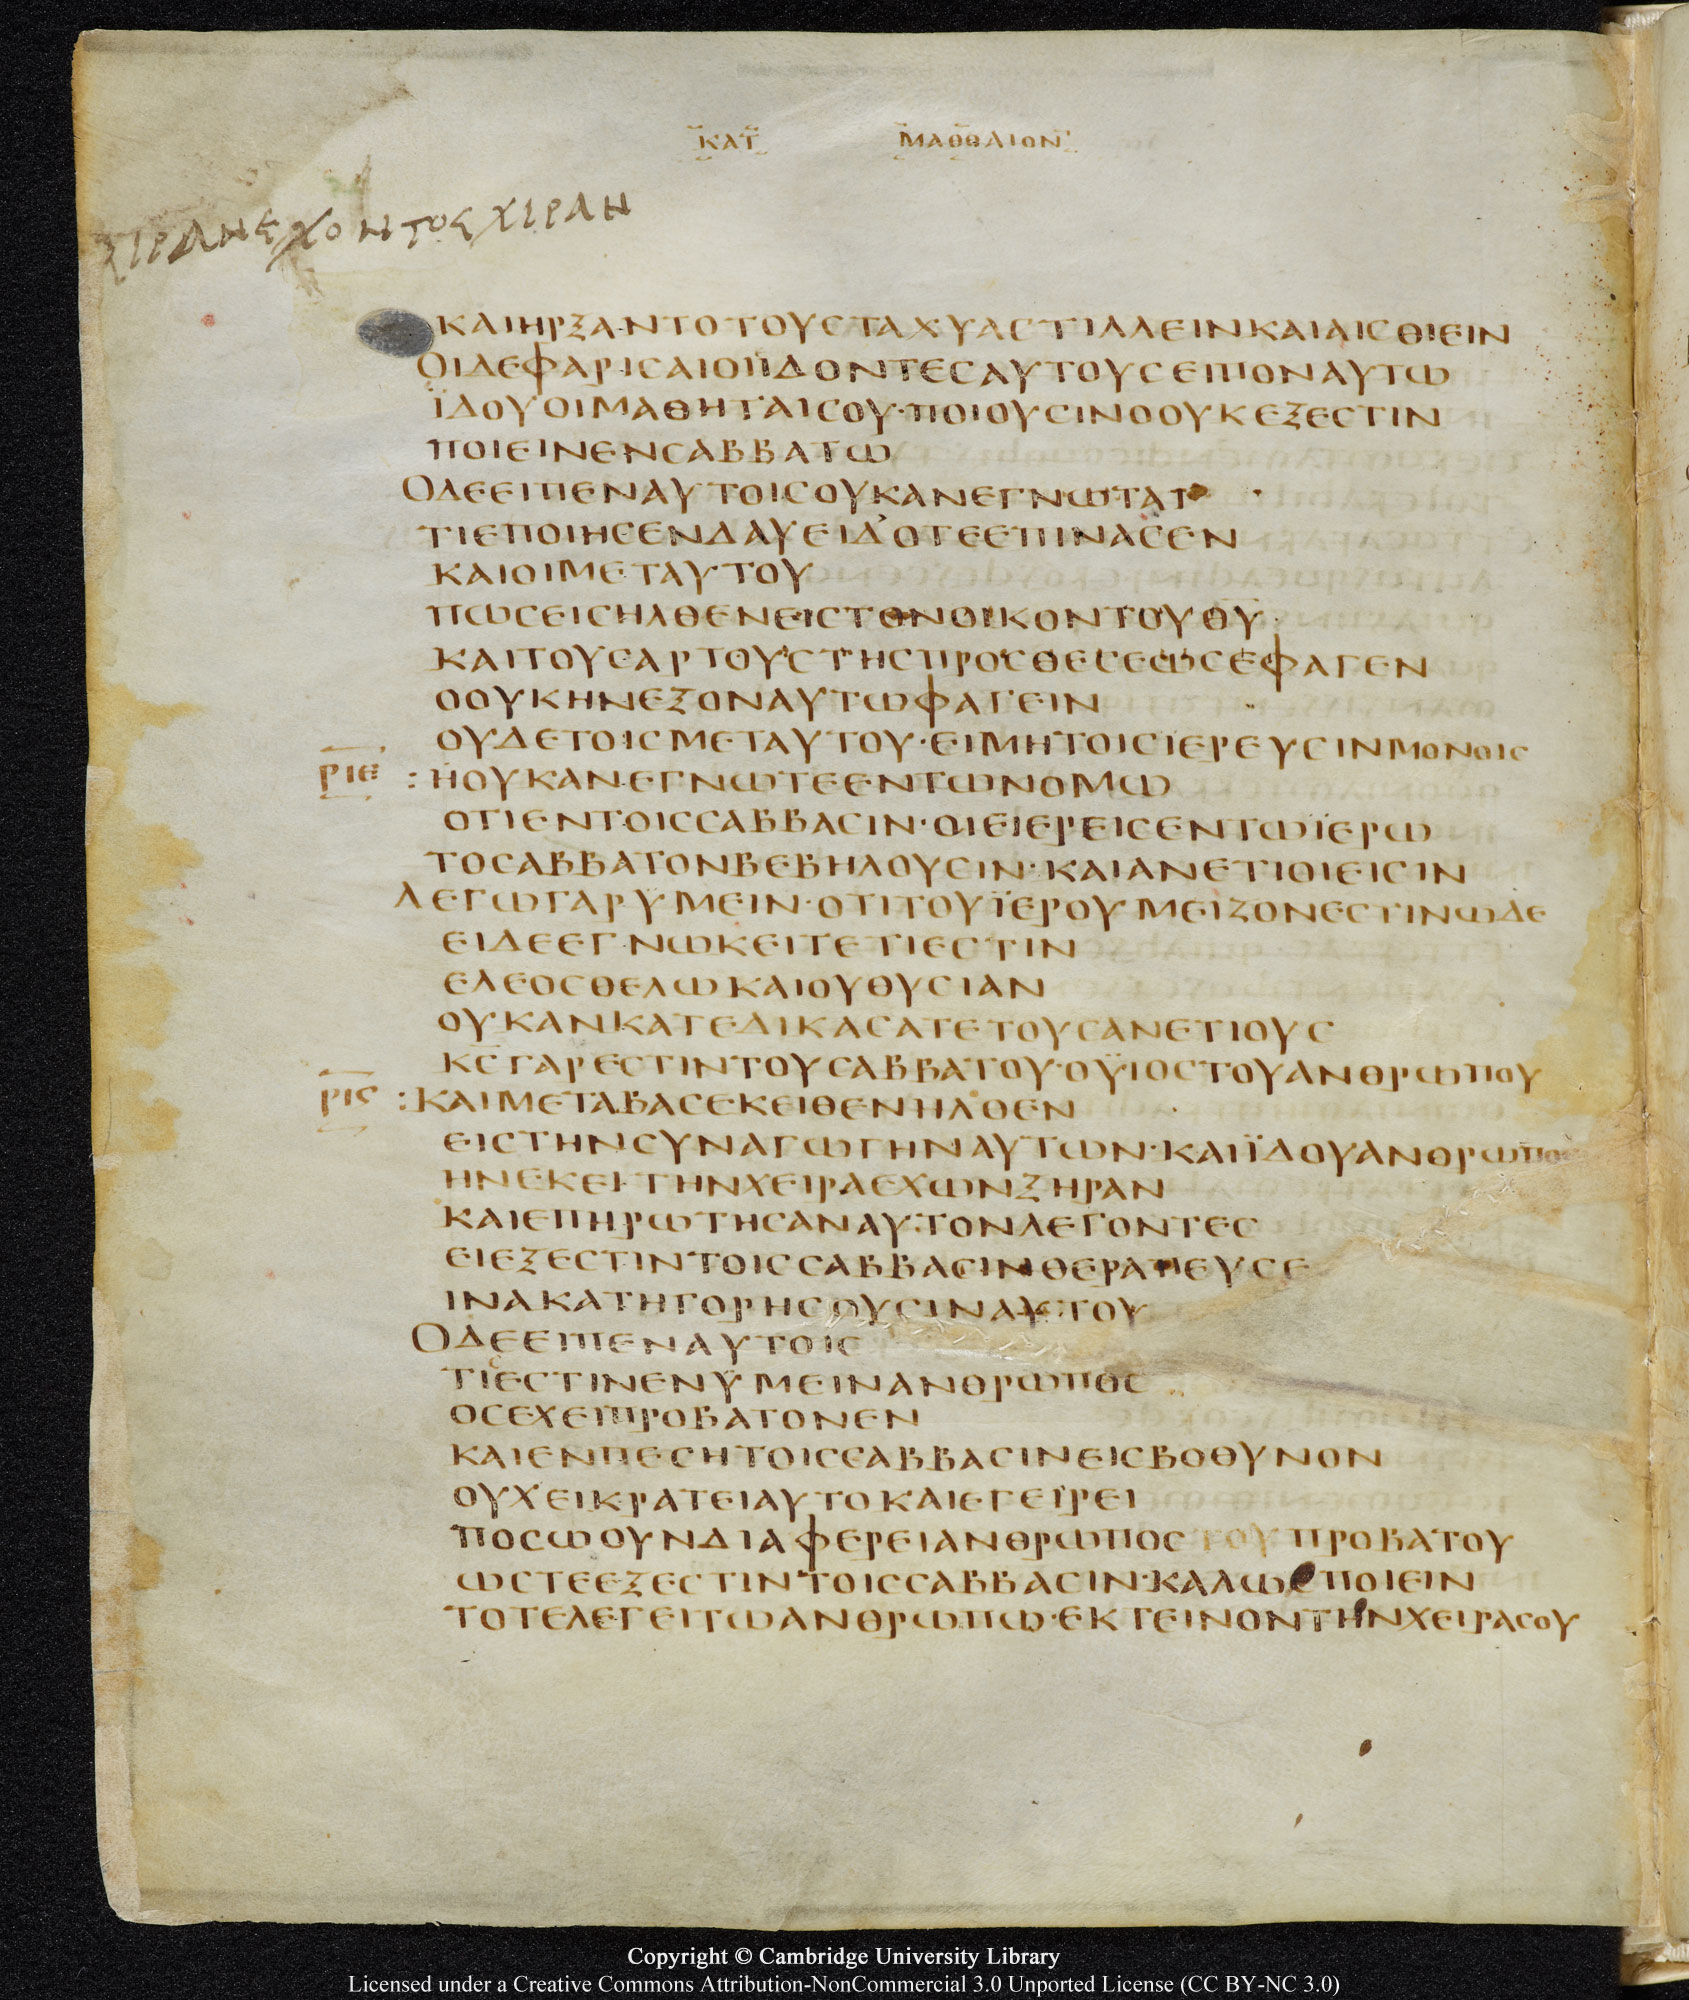 ΚΑΤ ΜΑΘΘΑΙΟΝ
ΧΙΡΑΝΕΧΟΝΤΟΣΧΙΡΑΝ
ΚΑΙΗΡΞΑΝΤΟΤΟΥCΤΑΧΥΑCΤΙΛΛΕΙΝΚΑΙΑΙCΘΙΕΙΝ
ΟΙΔΕΦΑΡΙCΑΙΟΙΪΔΟΝΤΕCΑΥΤΟΥCΕΙΠΟΝΑΥΤΩ
ΪΔΟΥΟΙΜΑΘΗΤΑΙCΟΥ·ΠΟΙΟΥCΙΝΟΟΥΚΕΞΕCΤΙΝ
ΠΟΙΕΙΝΕΝCΑΒΒΑΤΩ
ΟΔΕΕΙΠΕΝΑΥΤΟΙCΟΥΚΑΝΕΓΝΩΤΑΙ
ΤΙΕΠΟΙΗCΕΝΔΑΥΕΙΔ᾽ΟΤΕΕΠΙΝΑCΕΝ
ΚΑΙΟΙΜΕΤΑΥΤΟΥ
ΠΩCΕΙCΗΛΘΕΝΕΙCΤΟΝΟΙΚΟΝΤΟΥΘΥ
ΚΑΙΤΟΥCΑΡΤΟΥCΤΗCΠΡΟCΘΕCΕΩCΕΦΑΓΕΝ
ΟΟΥΚΗΝΕΞΟΝΑΥΤΩΦΑΓΕΙΝ
ΟΥΔΕΤΟΙCΜΕΤΑΥΤΟΥ·ΕΙΜΗΤΟΙCΙΕΡΕΥCΙΝΜΟΝΟΙC
ΡΙΕ :ΗΟΥΚΑΝΕΓΝΩΤΕΕΝΤΩΝΟΜΩ
ΟΤΙΕΝΤΟΙCCΑΒΒΑCΙΝ·ΟΙΕΙΕΡΕΙCΕΝΤΩΪΕΡΩ
ΤΟCΑΒΒΑΤΟΝΒΕΒΗΛΟΥCΙΝ·ΚΑΙΑΝΕΤΙΟΙΕΙCΙΝ
ΛΕΓΩΓΑΡΥΜΕΙΝ·ΟΤΙΤΟΥΪΕΡΟΥΜΕΙΖΟΝΕCΤΙΝΩΔΕ
ΕΙΔΕΕΓΝΩΚΕΙΤΕΤΙΕCΤΙΝ
ΕΛΕΟCΘΕΛΩΚΑΙΟΥΘΥCΙΑΝ
ΟΥΚΑΝΚΑΤΕΔΙΚΑCΑΤΕΤΟΥCΑΝΕΤΙΟΥC
ΚCΓΑΡΕCΤΙΝΤΟΥCΑΒΒΑΤΟΥ·ΟΥΪΟCΤΟΥΑΝΘΡΩΠΟΥ
ΡΙϚ :ΚΑΙΜΕΤΑΒΑCΕΚΕΙΘΕΝΗΛΘΕΝ
ΕΙCΤΗΝCΥΝΑΓΩΓΗΝΑΥΤΩΝ·ΚΑΙΪΔΟΥΑΝΘΡΩΠΟC
ΗΝΕΚΕΙΤΗΝΧΕΙΡΑΕΧΩΝΞΗΡΑΝ
ΚΑΙΕΠΗΡΩΤΗCΑΝΑΥΤΟΝΛΕΓΟΝΤΕC
ΕΙΕΞΕCΤΙΝΤΟΙCCΑΒΒΑCΙΝΘΕΡΑΠΕΥCΕ
ΙΝΑΚΑΤΗΓΟΡΗCΟΥCΙΝΑΥΤΟΥ
ΟΔΕΕΙΠΕΝΑΥΤΟΙC
ΤΙΕCΤΙΝΕΝΫΜΕΙΝΑΝΘΡΩΠΟC
ΟCΕΧΕΙΠΡΟΒΑΤΟΝΕΝ
ΚΑΙΕΝΠΕCΗΤΟΙCCΑΒΒΑCΙΝΕΙCΒΟΘΥΝΟΝ
ΟΥΧΕΙΚΡΑΤΕΙΑΥΤΟΚΑΙΕΓΕΙΡΕΙ
ΠΟCΩΟΥΝΔΙΑΦΕΡΕΙΑΝΘΡΩΠΟCΤΟΥΠΡΟΒΑΤΟΥ
ΩCΤΕΕΞΕCΤΙΝΤΟΙCCΑΒΒΑCΙΝ·ΚΑΛΩCΠΟΙΕΙΝ
ΤΟΤΕΛΕΓΕΙΤΩΑΝΘΡΩΠΩ·ΕΚΤΕΙΝΟΝΤΗΝΧΕΙΡΑCΟΥ
Copyright © Cambridge University Library
Licensed under a Creative Commons Attribution-NonCommercial 3.0 Unported License (CC BY-NC 3.0)